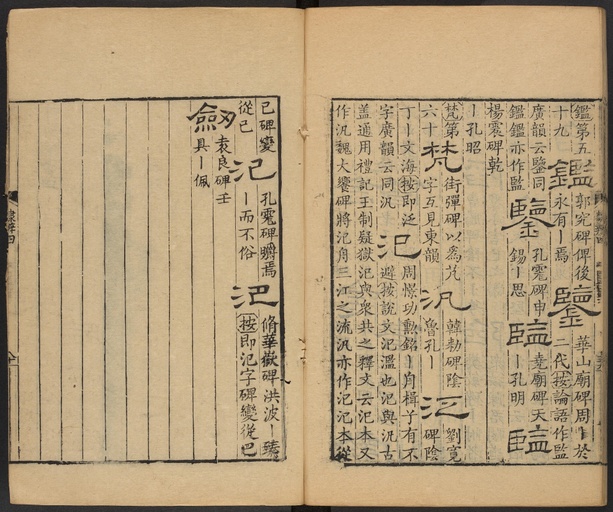 鑑第五
十九
鑑
郭究碑俾後
永有丨焉
鑒
華山廟碑周丨於
二代按論語作監
廣韻云鑒同
鑑鑑亦作監
鑒
孔霮碑申
錫丨思
監
堯廟碑天
丨孔明
監
楊震碑乾
丨孔昭
梵第
六十
梵
衛彈碑以為梵
字互見東韻
汎
韓勑碑陰
魯孔丨
汎
劉寬
碑陰
丁丨文海按即泛
字廣韻云同汎
氾
周憬功勳銘丨舟楫孑有不
避按說文氾濫也氾與汎古
盖通用禮記王制疑獄氾與衆共之釋文云氾本又
作汎魏大饗碑將氾舟三江之流汎亦作氾氾本從
巳碑變
從巳
氾
孔霮碑臞焉
丨而不俗
氾
脩華嶽碑洪波丨臻
按即氾字碑變從巴
劒
袁良碑玉
具丨佩
隸辨四